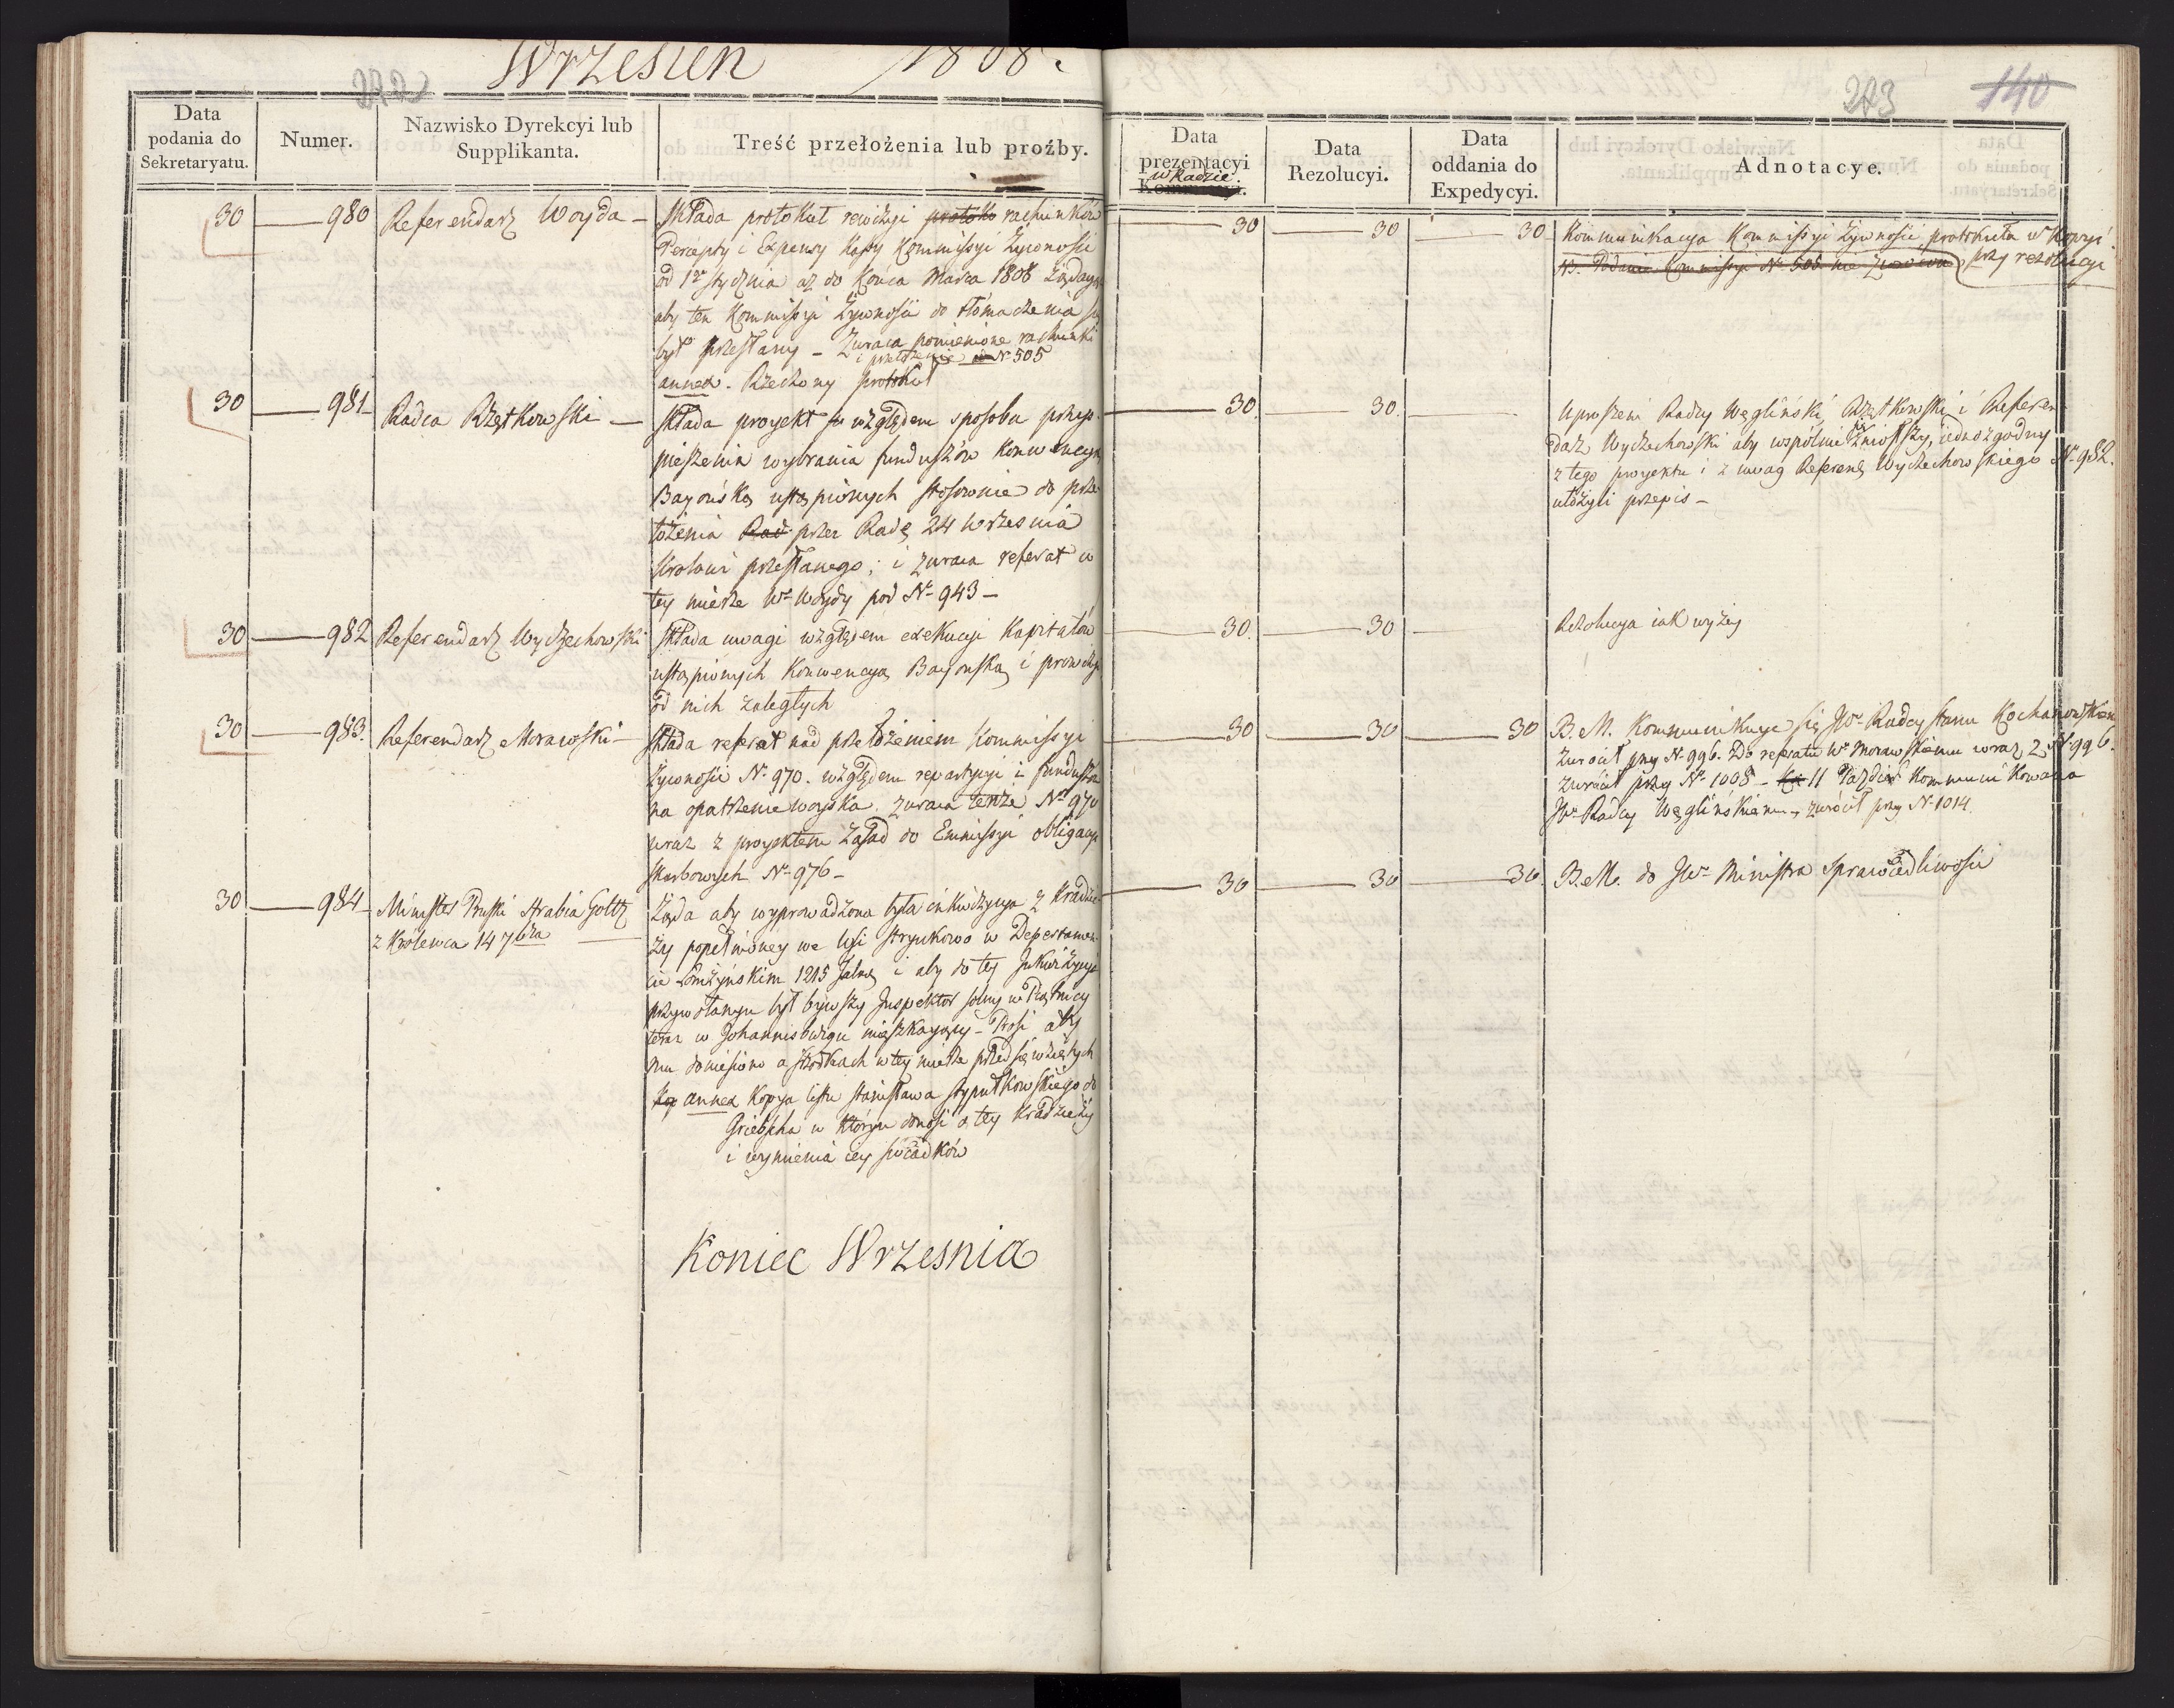 Wrzesień 1808.
272
273
140
Data
podania do
Sekretaryatu.
Numer.
Nazwisko Dyrekcyi lub
Supplikanta.
Treść przełożenia lub proźby.
Data
prezentacyi
w Radzie
Kommissyi.
Data
Rezolucyi.
Data
oddania do
Expedycyi.
Adnotacye.
30 980 Referendarz Woyda
Składa protokuł rewizyi protoko rachunków
Percepty i Expensy Kassy Kommissyi Żywności
od 1º stycznia aż do Końca Marca 1808 Żądając
aby ten Kommissyi Żywności do tłómaczenia się
był przesłany - Zwraca pomienione rachunki
i przełożenie Nº 505
annex. Rzeczony protokuł
30 30 30
Kommunikacya Kommissyi Żywności protokułu w Kopyi
przy rezolucyi
N3. Podanie Kommissyi Nº 505 nie zwrócone
30 981 Radca Rzętkowski
Składa proyekt względem sposobu przys-
pieszenia wybrania funduszów Konwencyą
Bayońską ustąpionych stosownie do prze-
łożenia Rad przez Radę 24 Września
Krolowi przesłanego; i zwraca referat w
tey mierze Wº Woydy pod Nº 943 -
30 30
Uproszeni Radcy Węgliński, Rzętkowski i Referen-
darz Wyczechowski aby wspólnie zniósłszy się, iednozgodny
z tego proyektu i z uwag Referend. Wyczechowskiego Nº 982.
ułożyli przepis -
30 982 Referendarz Wyczechowski
Składa uwagi względem exekucyi Kapitałów
ustąpionych Konwencyą Bayońską i prowizyi
od nich zaległych
30 30
Rezolucya iak wyżey
30 983. Referendarz Morawski
Składa referat nad przełożeniem Kommissyi
Żywności Nº 970. względem repartycyi i funduszu
na opatrzenie woyska. zwraca tenże Nº 970
wraz z proyektem Zasad do Emmissyi obligacyi
skarbowych Nº 976 -
30 30 30
B. M. Kommunikuje się JWº Radcy stanu Kochanowskiemu
zwrócił przy Nº 996. Do referatu Wº Morawskiemu wraz z Nº 996.
zwrócił przy Nº 1008 - 11 Paźdz. Kommunikowana
JWº Radcy Węglińskiemu, zwrócił przy Nº 1014.
30 984 Minister Pruski Hrabia Goltz
z Królewca 14 7bra
Żąda aby wyprowadzona była inkwizycya z Kradzie-
ży popełnioney we Wsi Strynkowo w Departamen-
cie Łomżyńskim 1215 Talarów i aby do tey Inkwizycyi
przywołanym był bywszy Inspektor solny w Piątnicy
teraz w Johannisburgu mięszkaiący - Prosi aby
mu doniesiono o szrodkach w tey mierze przedsięwziętych
annex Kopya listu Stanisława Stypułkowskiego do
Griebscha w którym donosi o tey Kradzieży
i wymienia iey świadków
30 30 30.
B. M. do JWº Ministra Sprawiedliwości
Koniec Wrzesnia